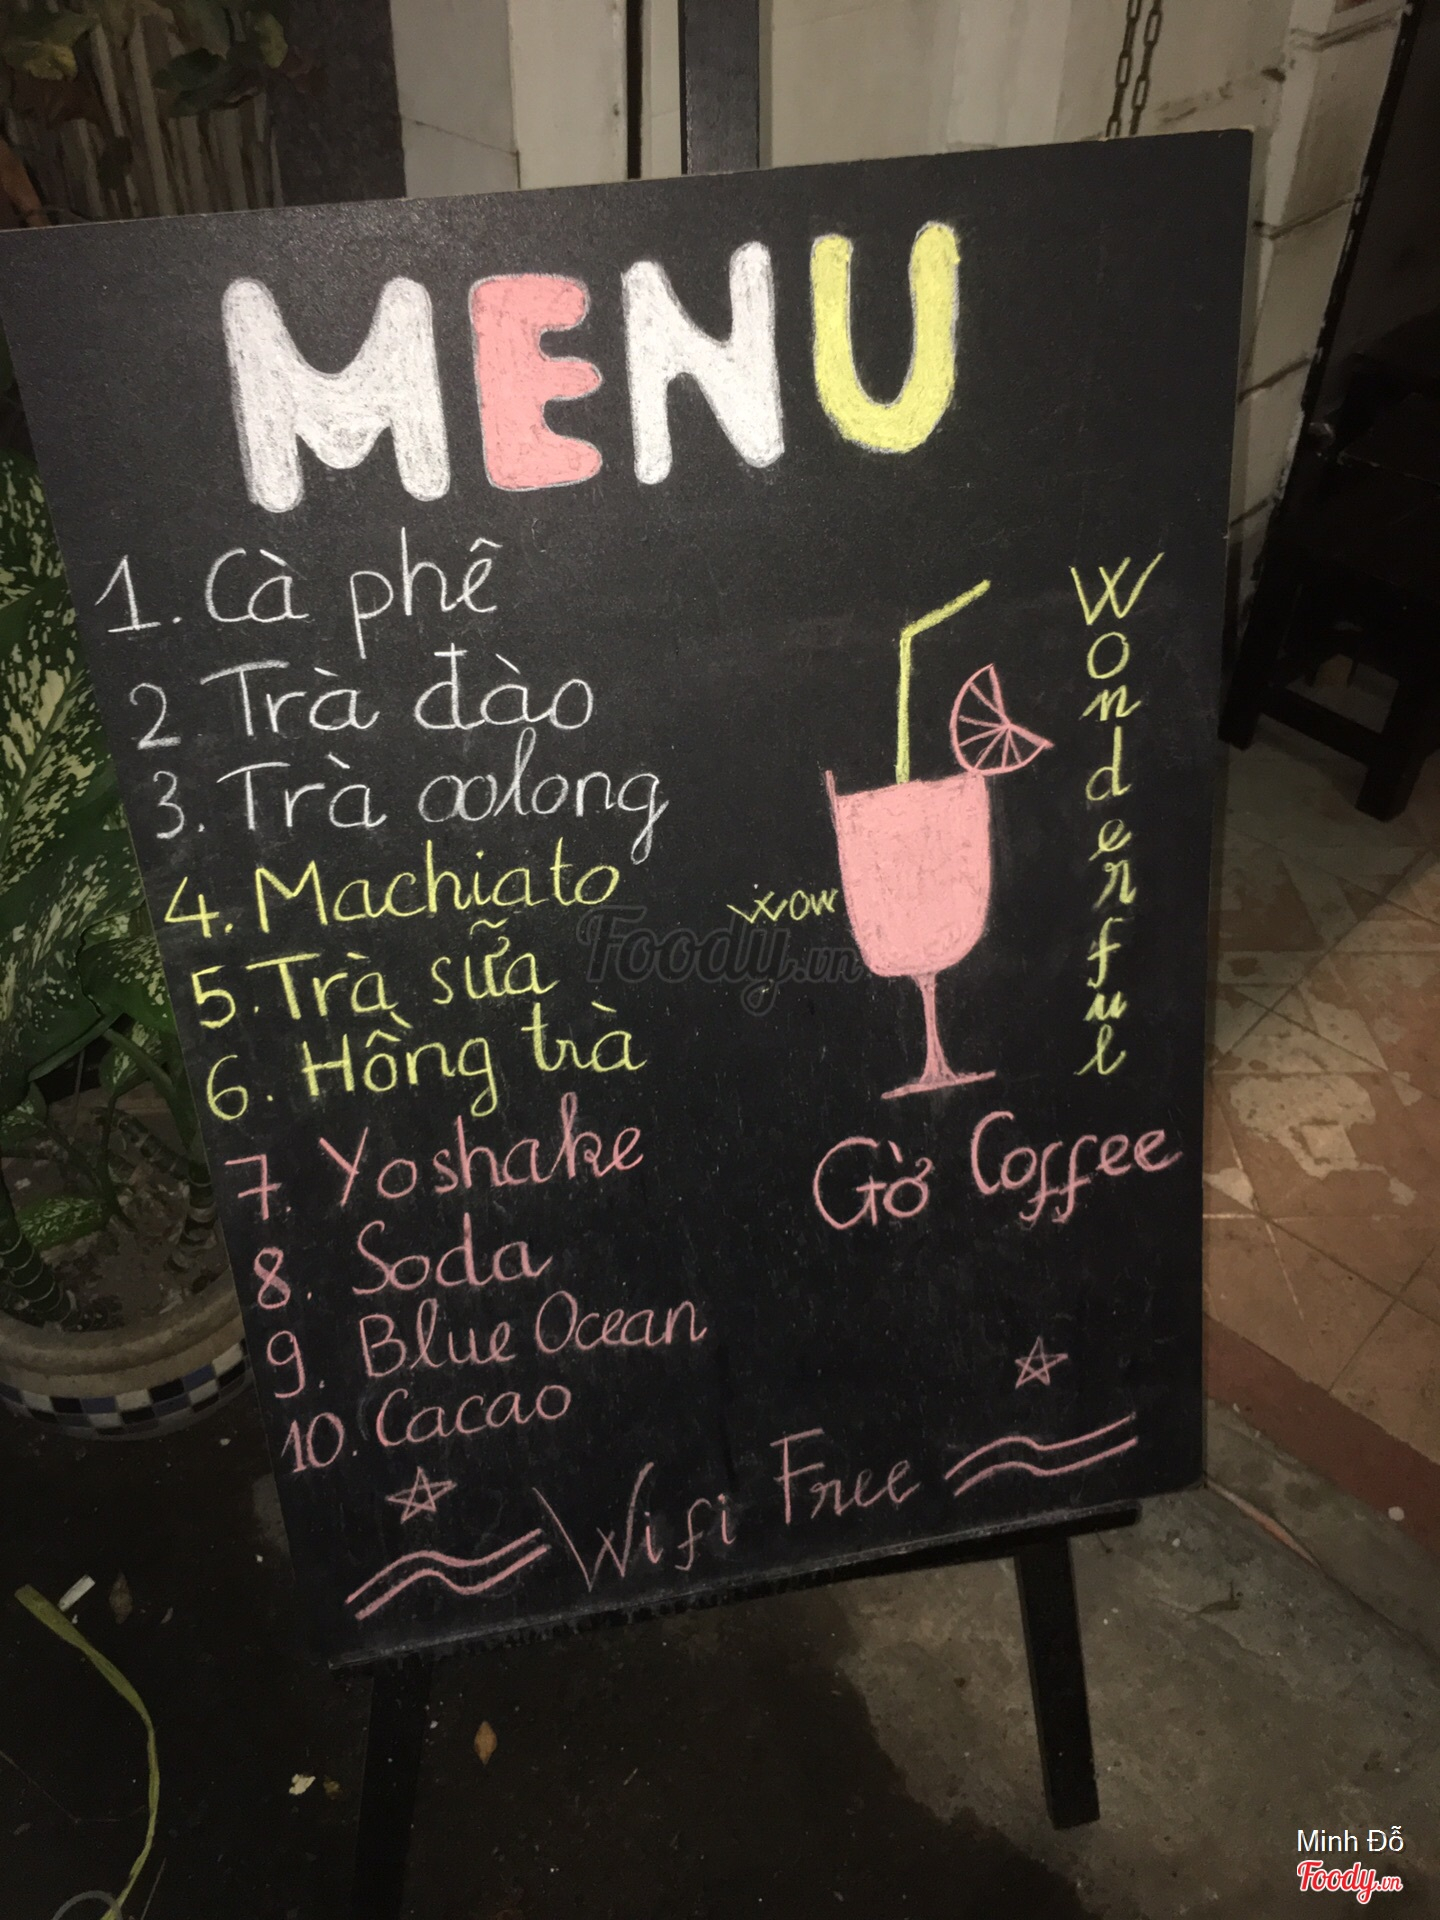 MENU
1. Cà phê
2 Trà đào
3. Trà oolong
4. Machiato
5. Trà sữa
6. Hồng trà
7. Yoshake
8. Soda
9. Blue Ocean
10. Cacao
Wonderful
wow
Gờ Coffee
Wifi Free
Foody.vn
Minh Đỗ
Foody.vn